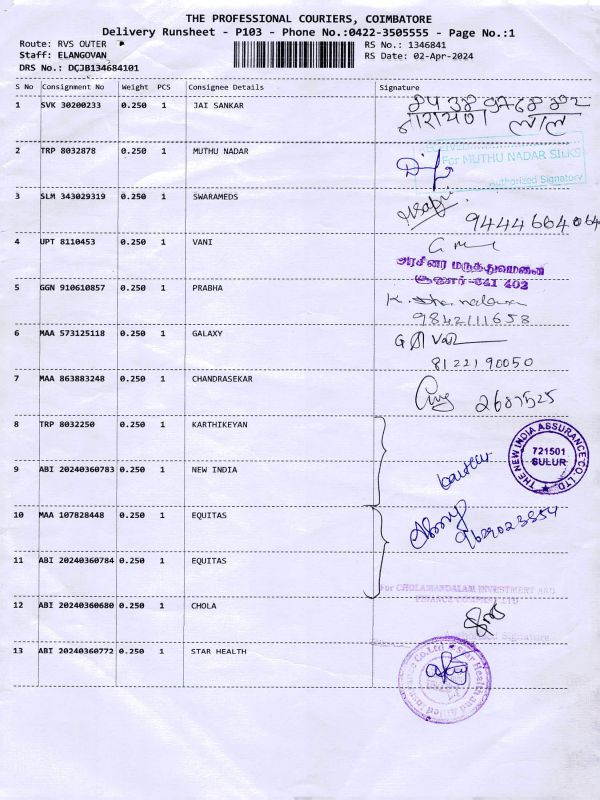 THE PROFESSIONAL COURIERS, COIMBATORE
Delivery Runsheet - P103 - Phone No.:0422-3505555 - Page No.:1
Route: RVS OUTER
RS No.: 1346841
Staff: ELANGOVAN
RS Date: 02-Apr-2024
DRS No.: DCJB134684101
S No Consignment No Weight PCS Consignee Details Signature
1 SVK 30200233 0.250 1 JAI SANKAR
नारायण लाल
2 TRP 8032878 0.250 1 MUTHU NADAR
For MUTHU NADAR SILKS
Authorized Signatory
3 SLM 343029319 0.250 1 SWARAMEDS
9444664064
4 UPT 8110453 0.250 1 VANI
அரசினர் மருத்துவமனை
சூலூர்-641 402
5 GGN 910610857 0.250 1 PRABHA
9842111658
6 MAA 573125118 0.250 1 GALAXY
8122190050
7 MAA 863883248 0.250 1 CHANDRASEKAR
2687525
8 TRP 8032250 0.250 1 KARTHIKEYAN
THE NEW INDIA ASSURANCE CO. LTD.
721501
SULUR
9 ABI 20240360783 0.250 1 NEW INDIA
10 MAA 107828448 0.250 1 EQUITAS
9629023554
11 ABI 20240360784 0.250 1 EQUITAS
For CHOLAMANDALAM INVESTMENT AND
FINANCE COMPANY LTD
12 ABI 20240360680 0.250 1 CHOLA
Signature
13 ABI 20240360772 0.250 1 STAR HEALTH
Star Health and Allied Insurance Co.Ltd